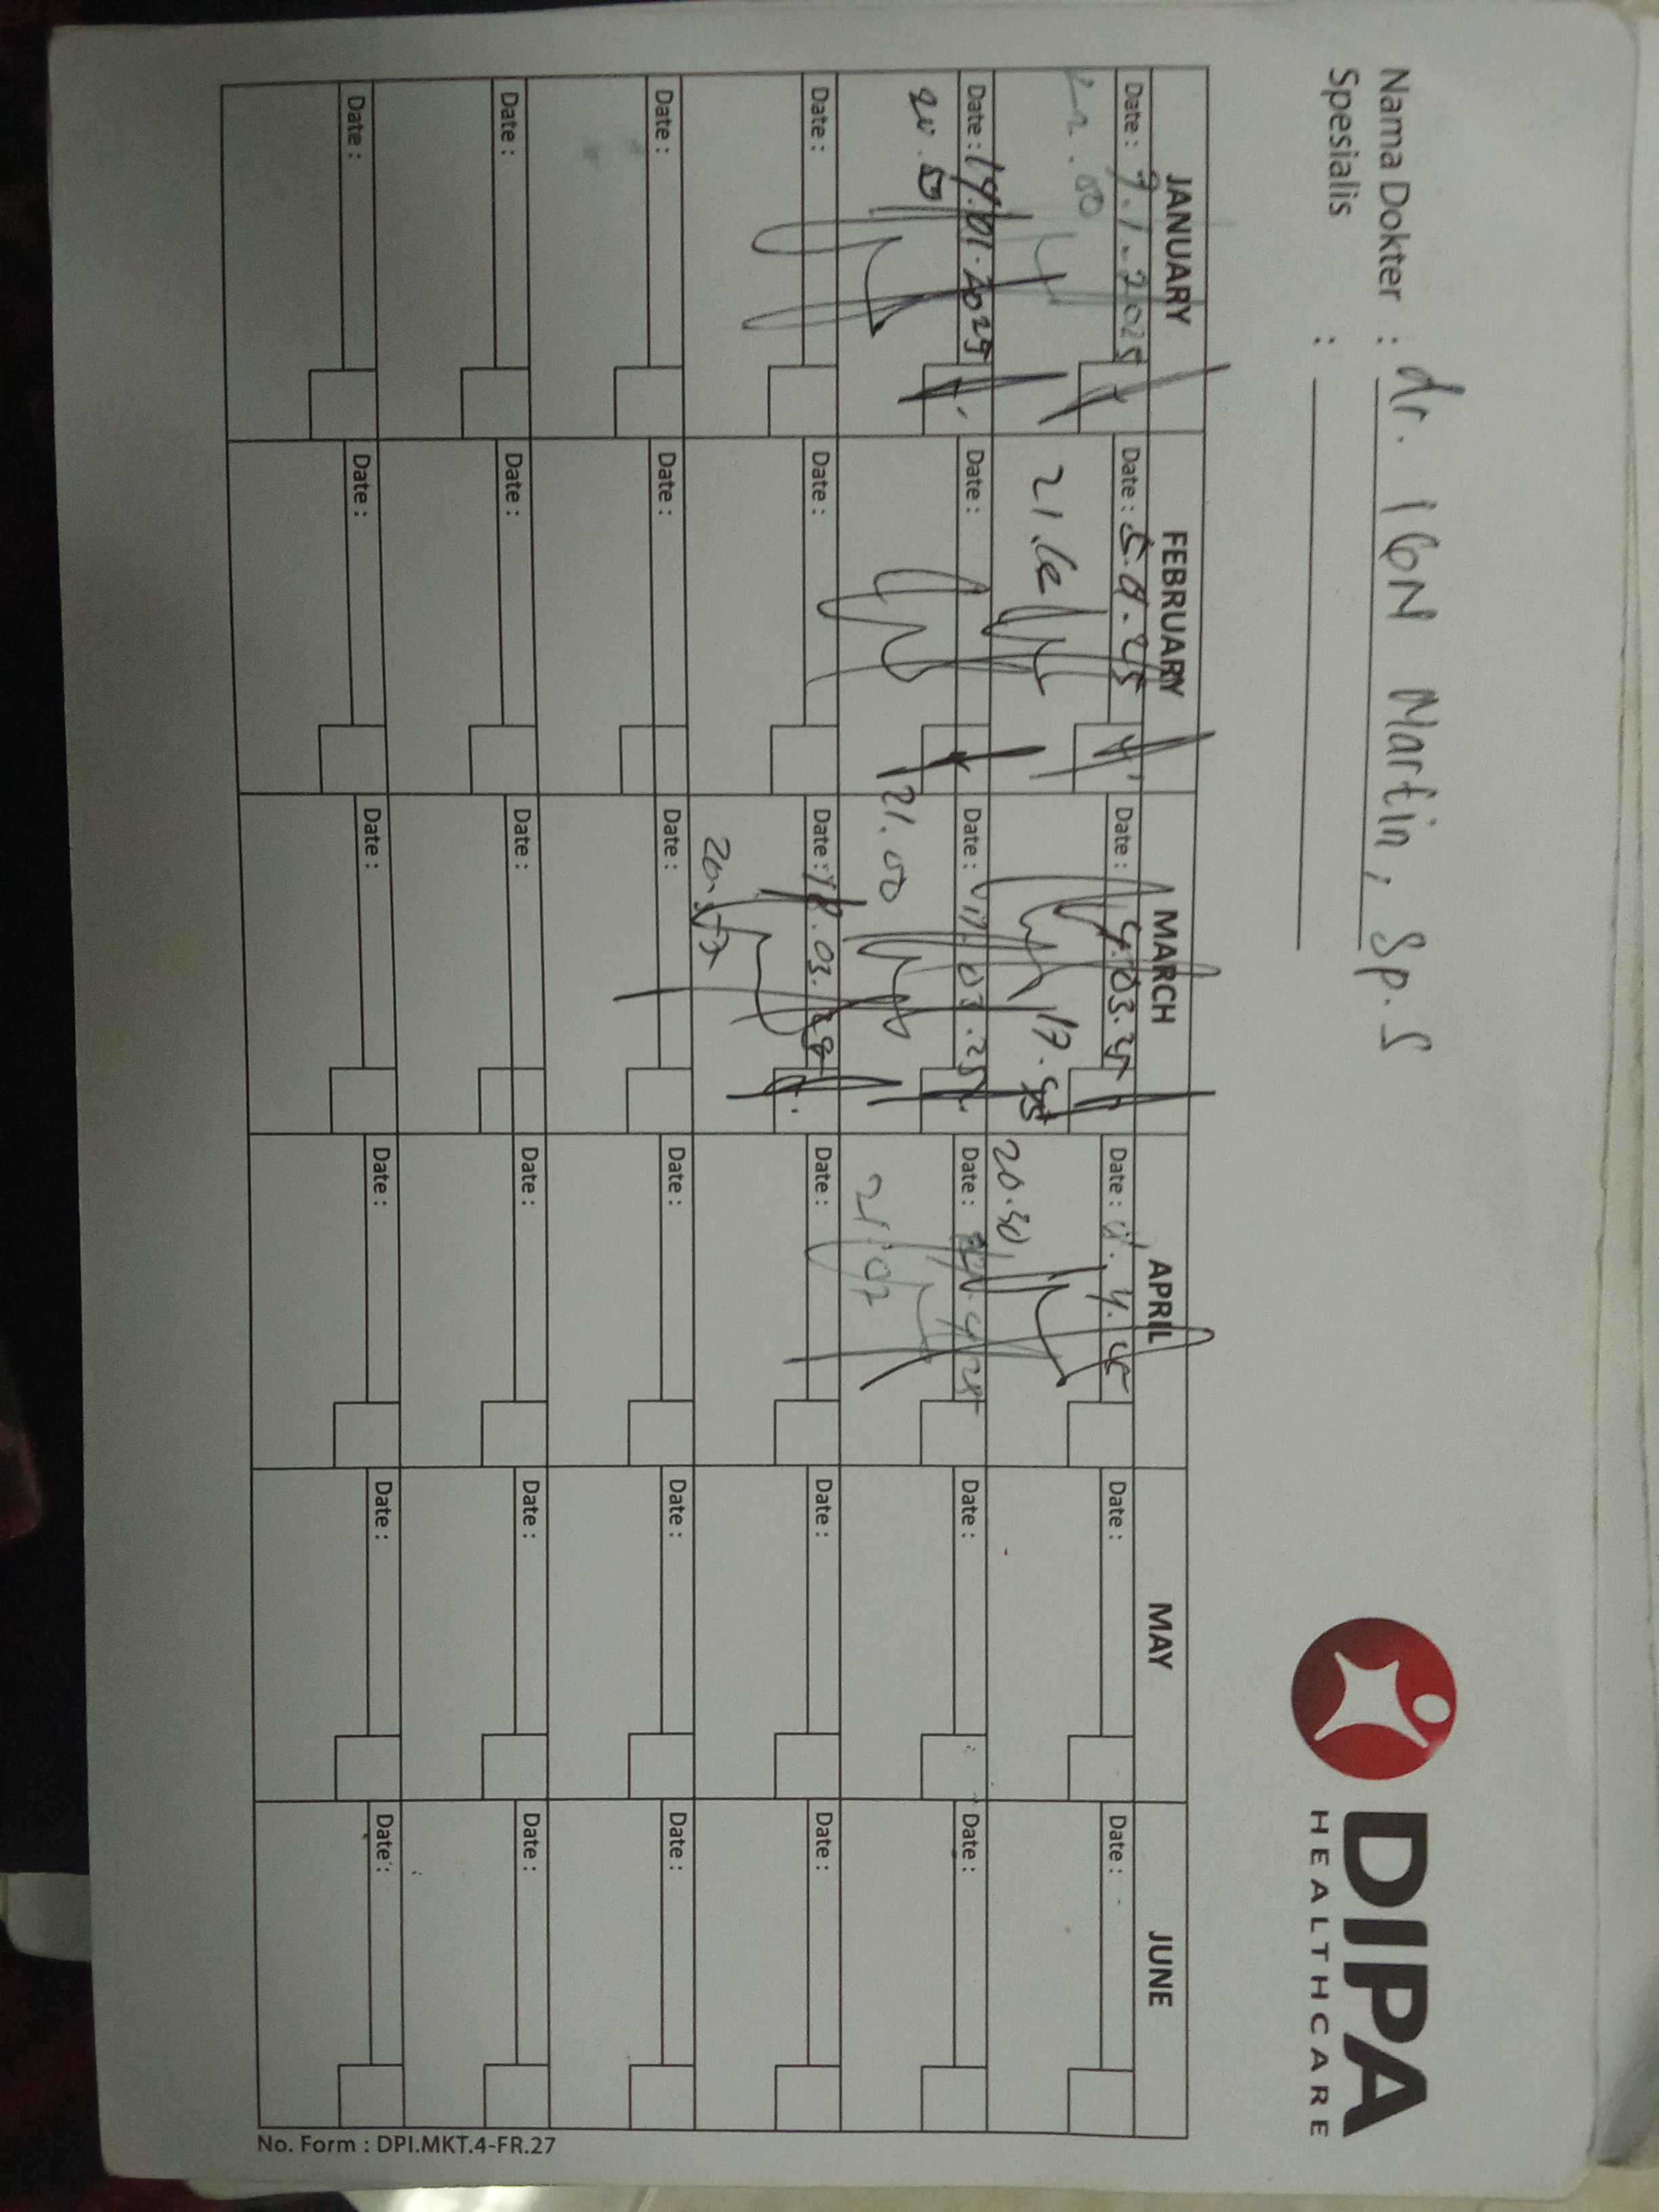 Nama Dokter : dr. IGN Martin, Sp. S
Spesialis :
DIPA
HEALTHCARE
JANUARY FEBRUARY MARCH APRIL MAY JUNE
Date : 7.1.2025 Date : Date : 4.03.25 Date : Date : Date :
17.45 20.30
Date : 14.01.2025 Date : Date : 03.25 Date : Date : Date :
21.00 21.07
Date : Date : Date : 18.03. Date : Date : Date :
Date : Date : Date : Date : Date : Date :
Date : Date : Date : Date : Date : Date :
Date : Date : Date : Date : Date : Date :
No. Form : DPI.MKT.4-FR.27